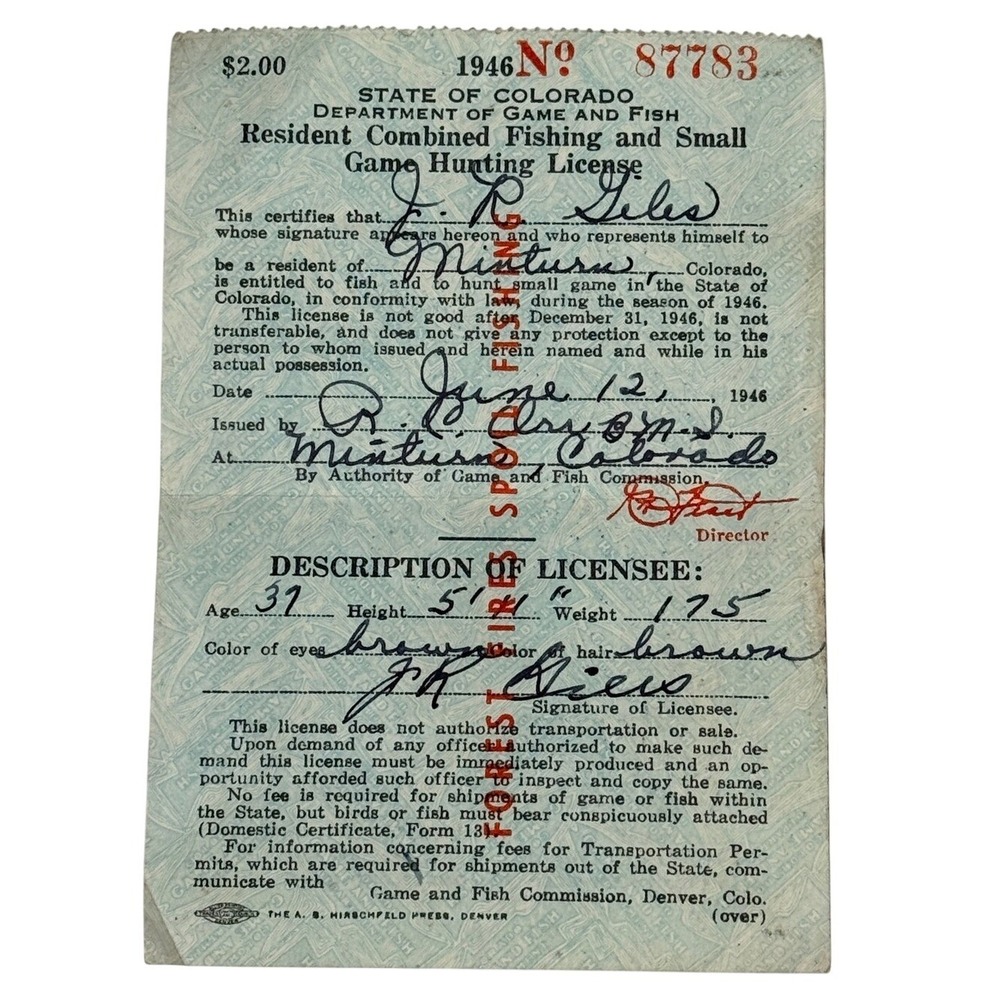 $2.00 1946 Nº 87783
STATE OF COLORADO
DEPARTMENT OF GAME AND FISH
Resident Combined Fishing and Small
Game Hunting License
This certifies that J. R. Giles
whose signature appears hereon and who represents himself to
be a resident of Minturn, Colorado,
is entitled to fish and to hunt small game in the State of
Colorado, in conformity with law, during the season of 1946.
This license is not good after December 31, 1946, is not
transferable, and does not give any protection except to the
person to whom issued and herein named and while in his
actual possession.
Date June 12, 1946
Issued by R. C.
At Minturn, Colorado
By Authority of Game and Fish Commission.
Director
DESCRIPTION OF LICENSEE:
Age 37 Height 5' 11" Weight 175
Color of eyes brown Color of hair brown
J R Giles
Signature of Licensee.
This license does not authorize transportation or sale.
Upon demand of any officer authorized to make such de-
mand this license must be immediately produced and an op-
portunity afforded such officer to inspect and copy the same.
No fee is required for shipments of game or fish within
the State, but birds or fish must bear conspicuously attached
(Domestic Certificate, Form 13).
For information concerning fees for Transportation Per-
mits, which are required for shipments out of the State, com-
municate with
Game and Fish Commission, Denver, Colo.
THE A. B. HIRSCHFELD PRESS, DENVER (over)
FOREST FIRES SPOIL FISHING